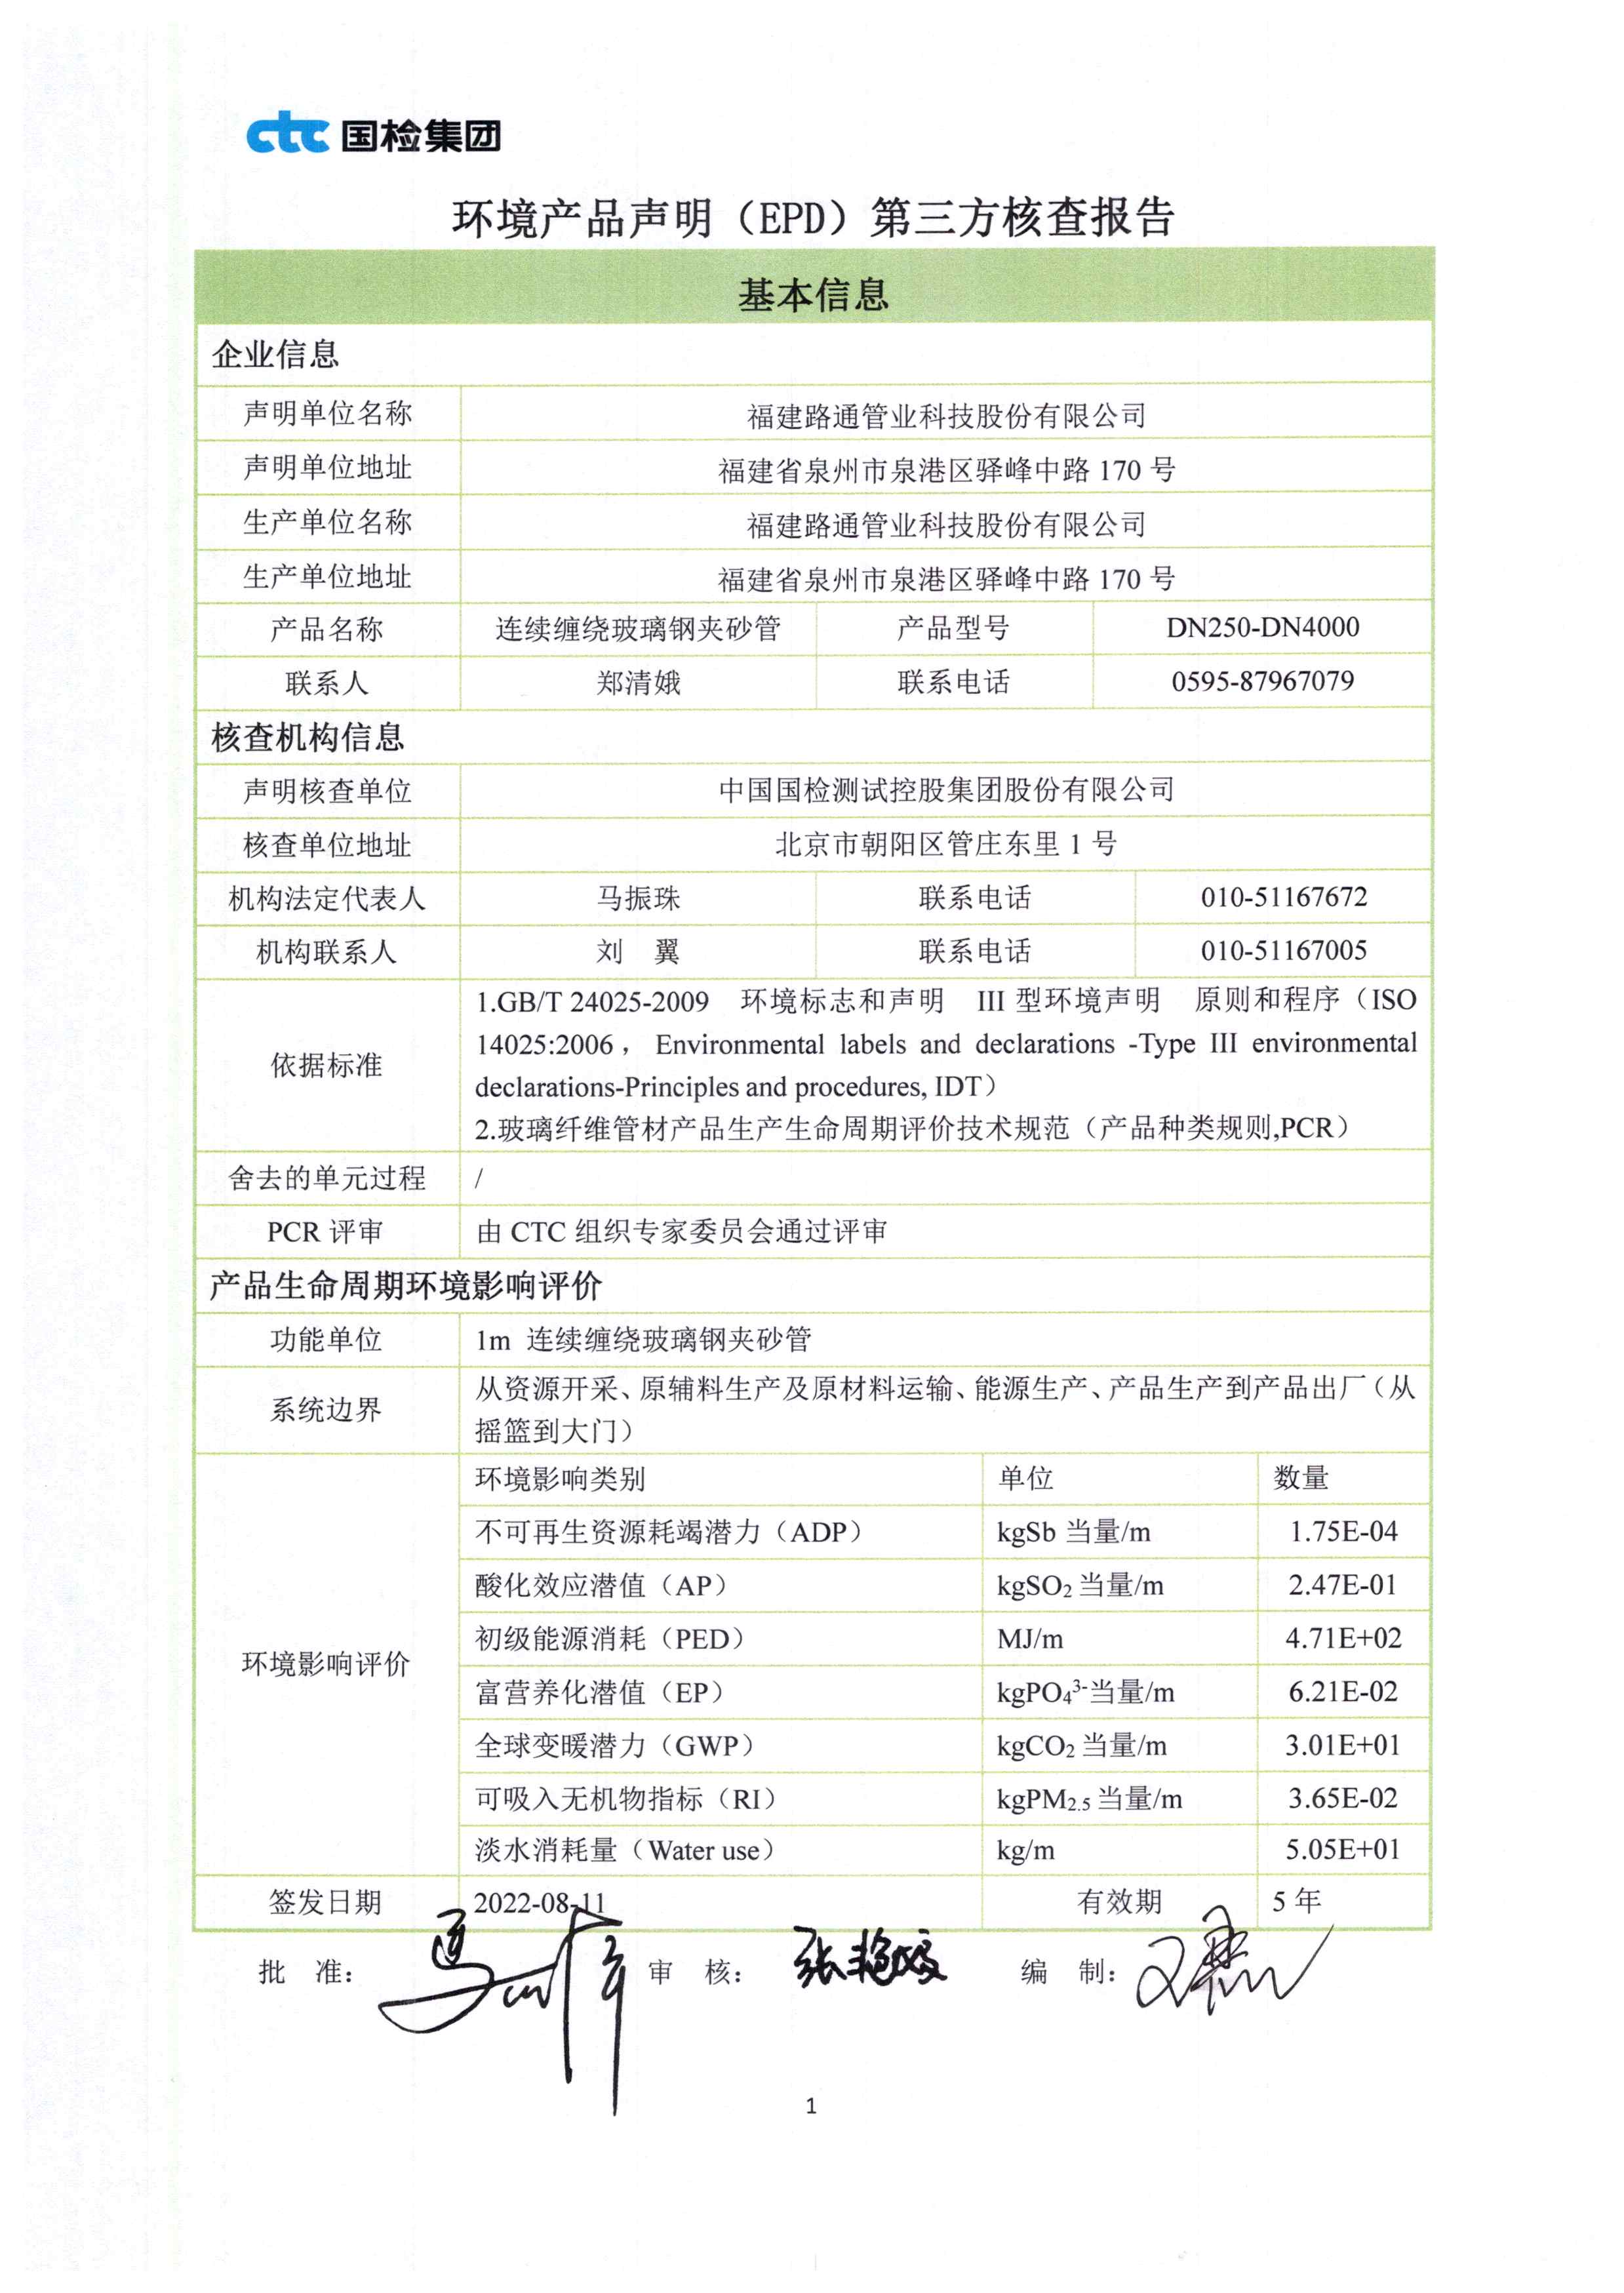 ctc 国检集团
环境产品声明（EPD）第三方核查报告
基本信息
企业信息
声明单位名称 福建路通管业科技股份有限公司
声明单位地址 福建省泉州市泉港区驿峰中路 170 号
生产单位名称 福建路通管业科技股份有限公司
生产单位地址 福建省泉州市泉港区驿峰中路 170 号
产品名称 连续缠绕玻璃钢夹砂管 产品型号 DN250-DN4000
联系人 郑清娥 联系电话 0595-87967079
核查机构信息
声明核查单位 中国国检测试控股集团股份有限公司
核查单位地址 北京市朝阳区管庄东里 1 号
机构法定代表人 马振珠 联系电话 010-51167672
机构联系人 刘　翼 联系电话 010-51167005
依据标准
1.GB/T 24025-2009　环境标志和声明　III 型环境声明　原则和程序（ISO
14025:2006， Environmental labels and declarations -Type III environmental
declarations-Principles and procedures, IDT）
2.玻璃纤维管材产品生产生命周期评价技术规范（产品种类规则,PCR）
舍去的单元过程 /
PCR 评审 由 CTC 组织专家委员会通过评审
产品生命周期环境影响评价
功能单位 1m 连续缠绕玻璃钢夹砂管
系统边界
从资源开采、原辅料生产及原材料运输、能源生产、产品生产到产品出厂（从
摇篮到大门）
环境影响评价
环境影响类别 单位 数量
不可再生资源耗竭潜力（ADP） kgSb 当量/m 1.75E-04
酸化效应潜值（AP） kgSO₂ 当量/m 2.47E-01
初级能源消耗（PED） MJ/m 4.71E+02
富营养化潜值（EP） kgPO₄³⁻当量/m 6.21E-02
全球变暖潜力（GWP） kgCO₂ 当量/m 3.01E+01
可吸入无机物指标（RI） kgPM₂.₅ 当量/m 3.65E-02
淡水消耗量（Water use） kg/m 5.05E+01
签发日期 2022-08-11 有效期 5 年
批　准： 审　核： 编　制：
1